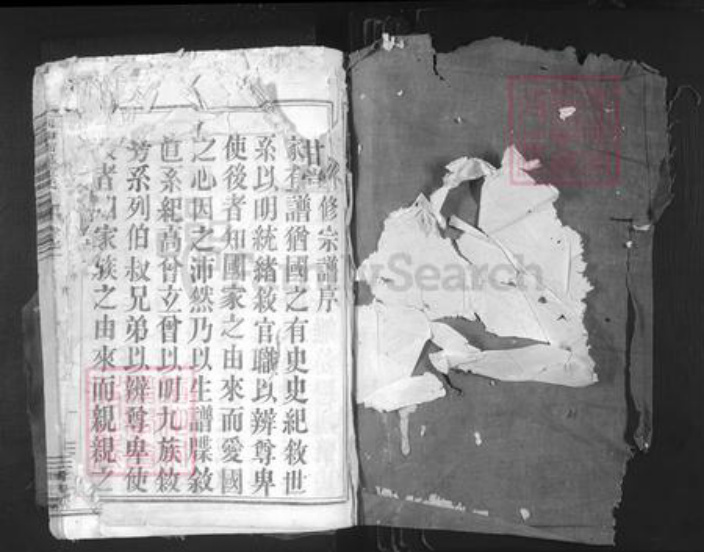 修宗譜序
家有譜猶國之有史史紀敘世
系以明統緒敘官職以辨尊卑
使後者知國家之由來而愛國
之心因之沛然乃以生譜牒敘
世系紀高曾立曾以明九族敘
旁系列伯叔兄弟以辨尊卑使
者知家族之由來而親親之
FamilySearch